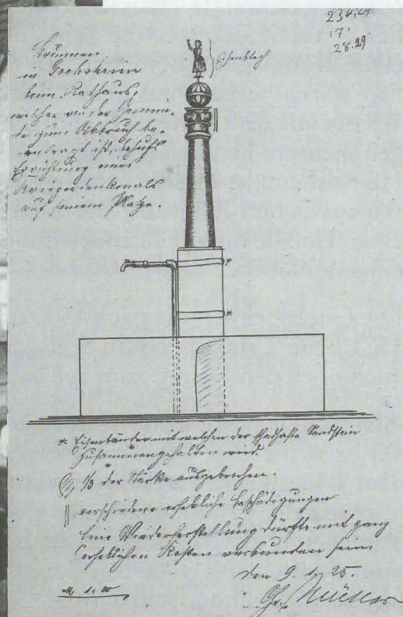 234,29
17.
28.29
Brunnen
in Grohsheim
beim Rathaus,
welcher von der Gemein-
de zum Abbruch be-
antragt ist, behufs
Errichtung eines
Kriegerdenkmals
auf seinem Platze.
Eisenblech
* Eisenbänder mit welchen der schadhafte Sandstein
zusammengehalten wird
1/3 der Stärke ausgebrochen.
|| verschiedene erhebliche Beschädigungen
Eine Wiederherstellung dürfte mit ganz
erheblichen Kosten verbunden sein.
den 9. 25.